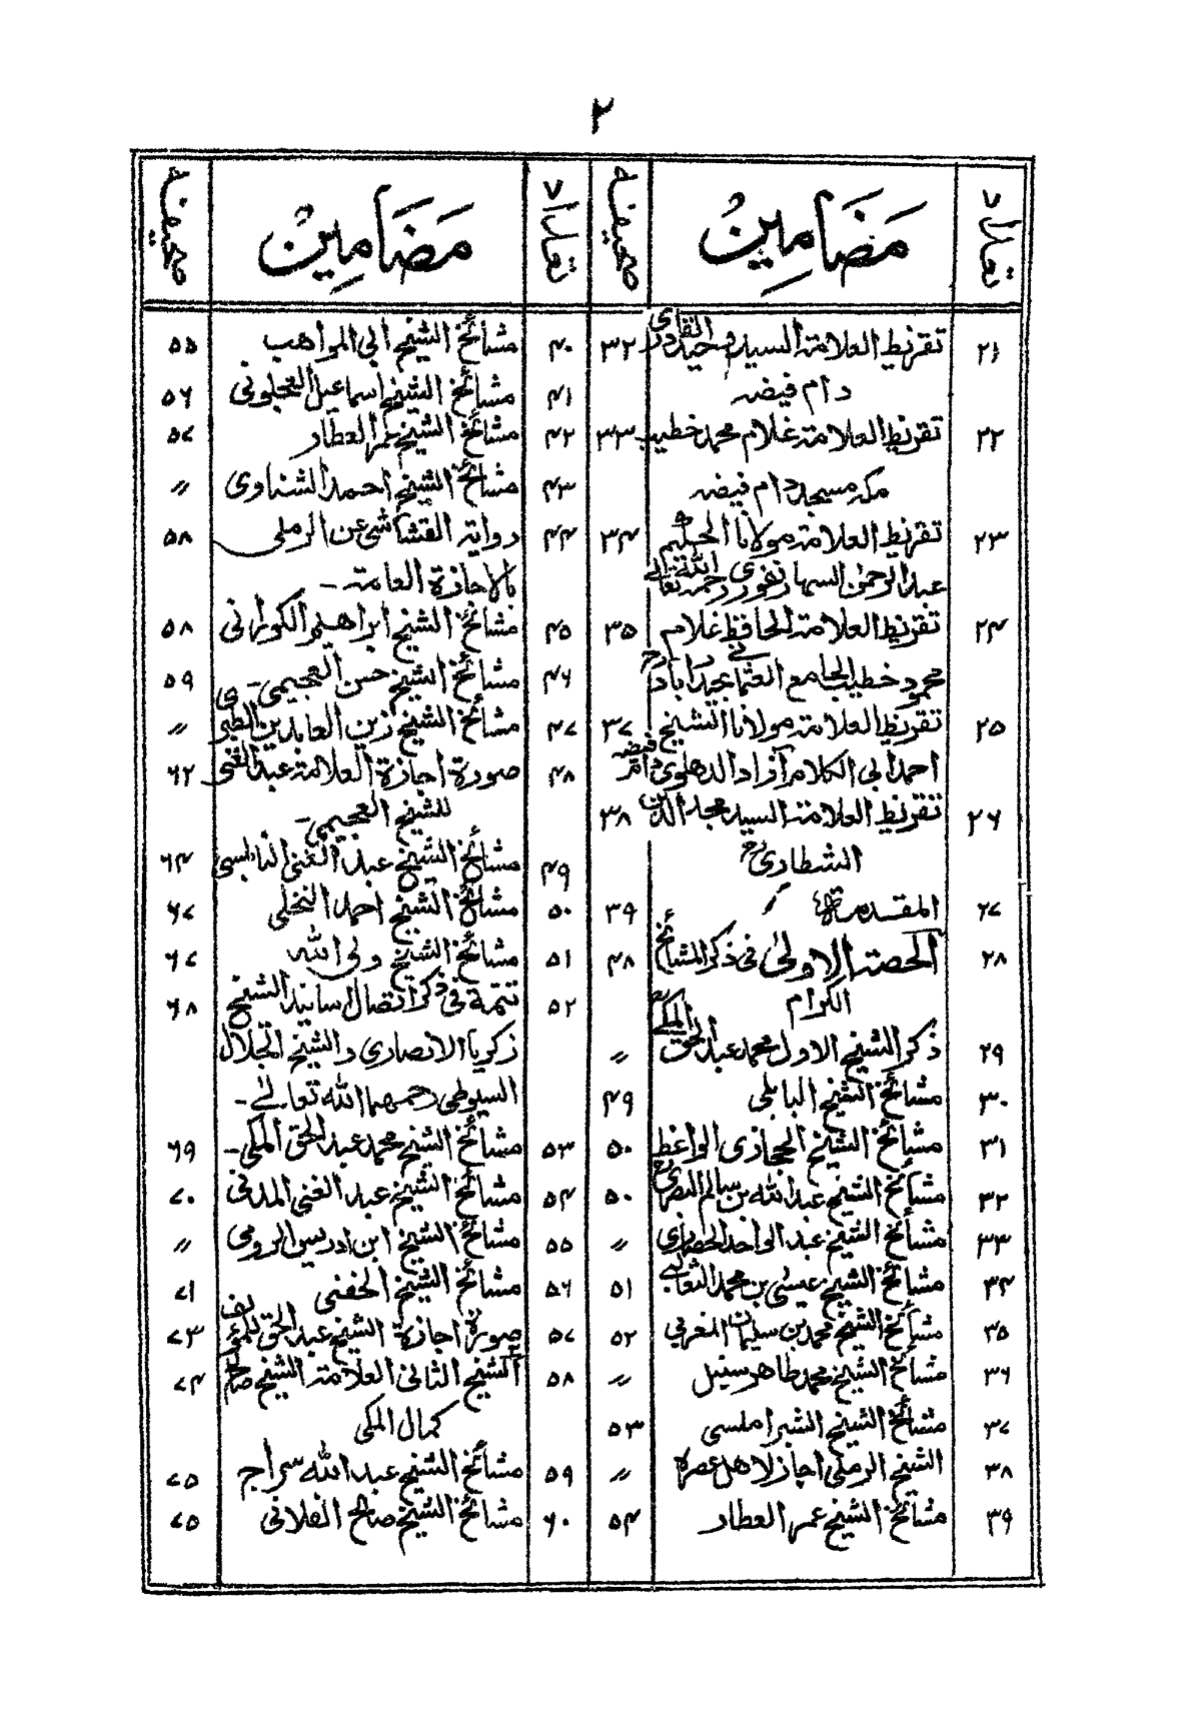 ۲
تعداد مضامین صحیفہ
۲۱ تقریظ العلامۃ السید وحید القادری ۳۲
دام فیضہ
۲۲ تقریظ العلامۃ غلام محمد خطیب ۳۳
مکہ مسجد دام فیضہ
۲۳ تقریظ العلامۃ مولانا الحکیم ۳۴
عبد الرحمٰن السہارنفوری رحمہ اللہ تعالیٰ
۲۴ تقریظ العلامۃ الحافظ غلام ۳۵
محمود خطیب الجامع
۲۵ تقریظ العلامۃ مولانا الشیخ ۳۷
احمد ابی الکلام آزاد الدھلوی دام فیضہ
۲۶ تقریظ العلامۃ السید مجد الدین ۳۸
الشطاری رح
۲۷ المقدمۃ ۳۹
۲۸ الحصۃ الاولیٰ فی ذکر المشائخ ۴۸
الکرام
۲۹ ذکر الشیخ الاول محمد عبد الحق المکی //
۳۰ مشائخ الشیخ البابلی ۴۹
۳۱ مشائخ الشیخ الحجازی الواعظ ۵۰
۳۲ مشائخ الشیخ عبد اللہ بن سالم البصری رح ۵۰
۳۳ مشائخ الشیخ عبد الواحد الحصاری //
۳۴ مشائخ الشیخ عیسیٰ بن محمد الثعالبی ۵۱
۳۵ مشائخ الشیخ محمد بن سلیمان المغربی ۵۲
۳۶ مشائخ الشیخ محمد طاھر سنبل //
۳۷ مشائخ الشیخ الشبراملسی ۵۳
۳۸ الشیخ الرملی اجاز لاھل عصرہ //
۳۹ مشائخ الشیخ عمر العطار ۵۴
تعداد مضامین صحیفہ
۴۰ مشائخ الشیخ ابی المواھب ۵۵
۴۱ مشائخ الشیخ اسماعیل العجلونی ۵۶
۴۲ مشائخ الشیخ عمر العطار ۵۷
۴۳ مشائخ الشیخ احمد الشناوی //
۴۴ روایۃ القشاشی عن الرملی ۵۸
بالاجازۃ العامۃ۔
۴۵ مشائخ الشیخ ابراھیم الکورانی ۵۸
۴۶ مشائخ الشیخ حسن العجیمی۔ ۵۹
۴۷ مشائخ الشیخ زین العابدین الطبری //
۴۸ صورۃ اجازۃ العلامۃ عبد الغنی ۶۲
للشیخ العجیمی۔
۴۹ مشائخ الشیخ عبد الغنی النابلسی ۶۴
۵۰ مشائخ الشیخ احمد النخلی ۶۷
۵۱ مشائخ الشیخ ولی اللہ ۶۷
۵۲ تتمۃ فی ذکر اتصال اسانید الشیخ ۶۸
زکریا الانصاری والشیخ الجلال
السیوطی رحمھما اللہ تعالیٰ۔
۵۳ مشائخ الشیخ محمد عبد الحق المکی۔ ۶۹
۵۴ مشائخ الشیخ عبد الغنی المدنی ۷۰
۵۵ مشائخ الشیخ ابن ادریس الرومی //
۵۶ مشائخ الشیخ الحفنی ۷۱
۵۷ صورۃ اجازۃ الشیخ عبد الحق للمؤلف ۷۳
۵۸ الشیخ الثانی العلامۃ الشیخ صالح ۷۴
کمال المکی
۵۹ مشائخ الشیخ عبد اللہ سراج ۷۵
۶۰ مشائخ الشیخ صالح الفلانی ۷۵